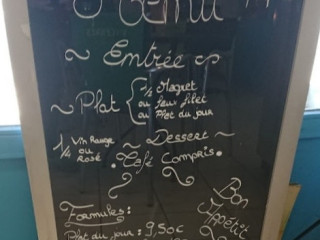 Menu
Entrée
Plat
1/2 Magret
ou faux filet
ou Plat du jour
1/4 Vin Rouge
ou
Rosé
Dessert
Café Compris.
Bon
Appétit
Formules:
Plat du jour: 9,50€